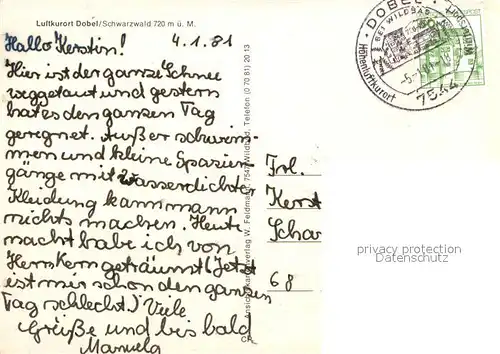 Luftkurort Dobel/Schwarzwald 720 m ü. M.
Hallo Kerstin! 4.1.81
Hier ist der ganze Schnee
weggetaut und gestern
hat es den ganzen Tag
geregnet. Außer schwim-
men und kleine Spazier-
gänge mit wasserdichter
Kleidung kann mann
nichts machen. Heute
nacht habe ich von
Herrn Kern geträumt (Jetzt
ist mir schon den ganzen
Tag schlecht.) Viele
Grüße und bis bald
Manuela
Ansichtskartenverlag W. Feldmann, 7547 Wildbad, Telefon (0 70 81) 20 13
DOBEL
BEI WILDBAD
Höhenluftkurort
7544
Frl.
Kerst
Schar
68
privacy protection
Datenschutz